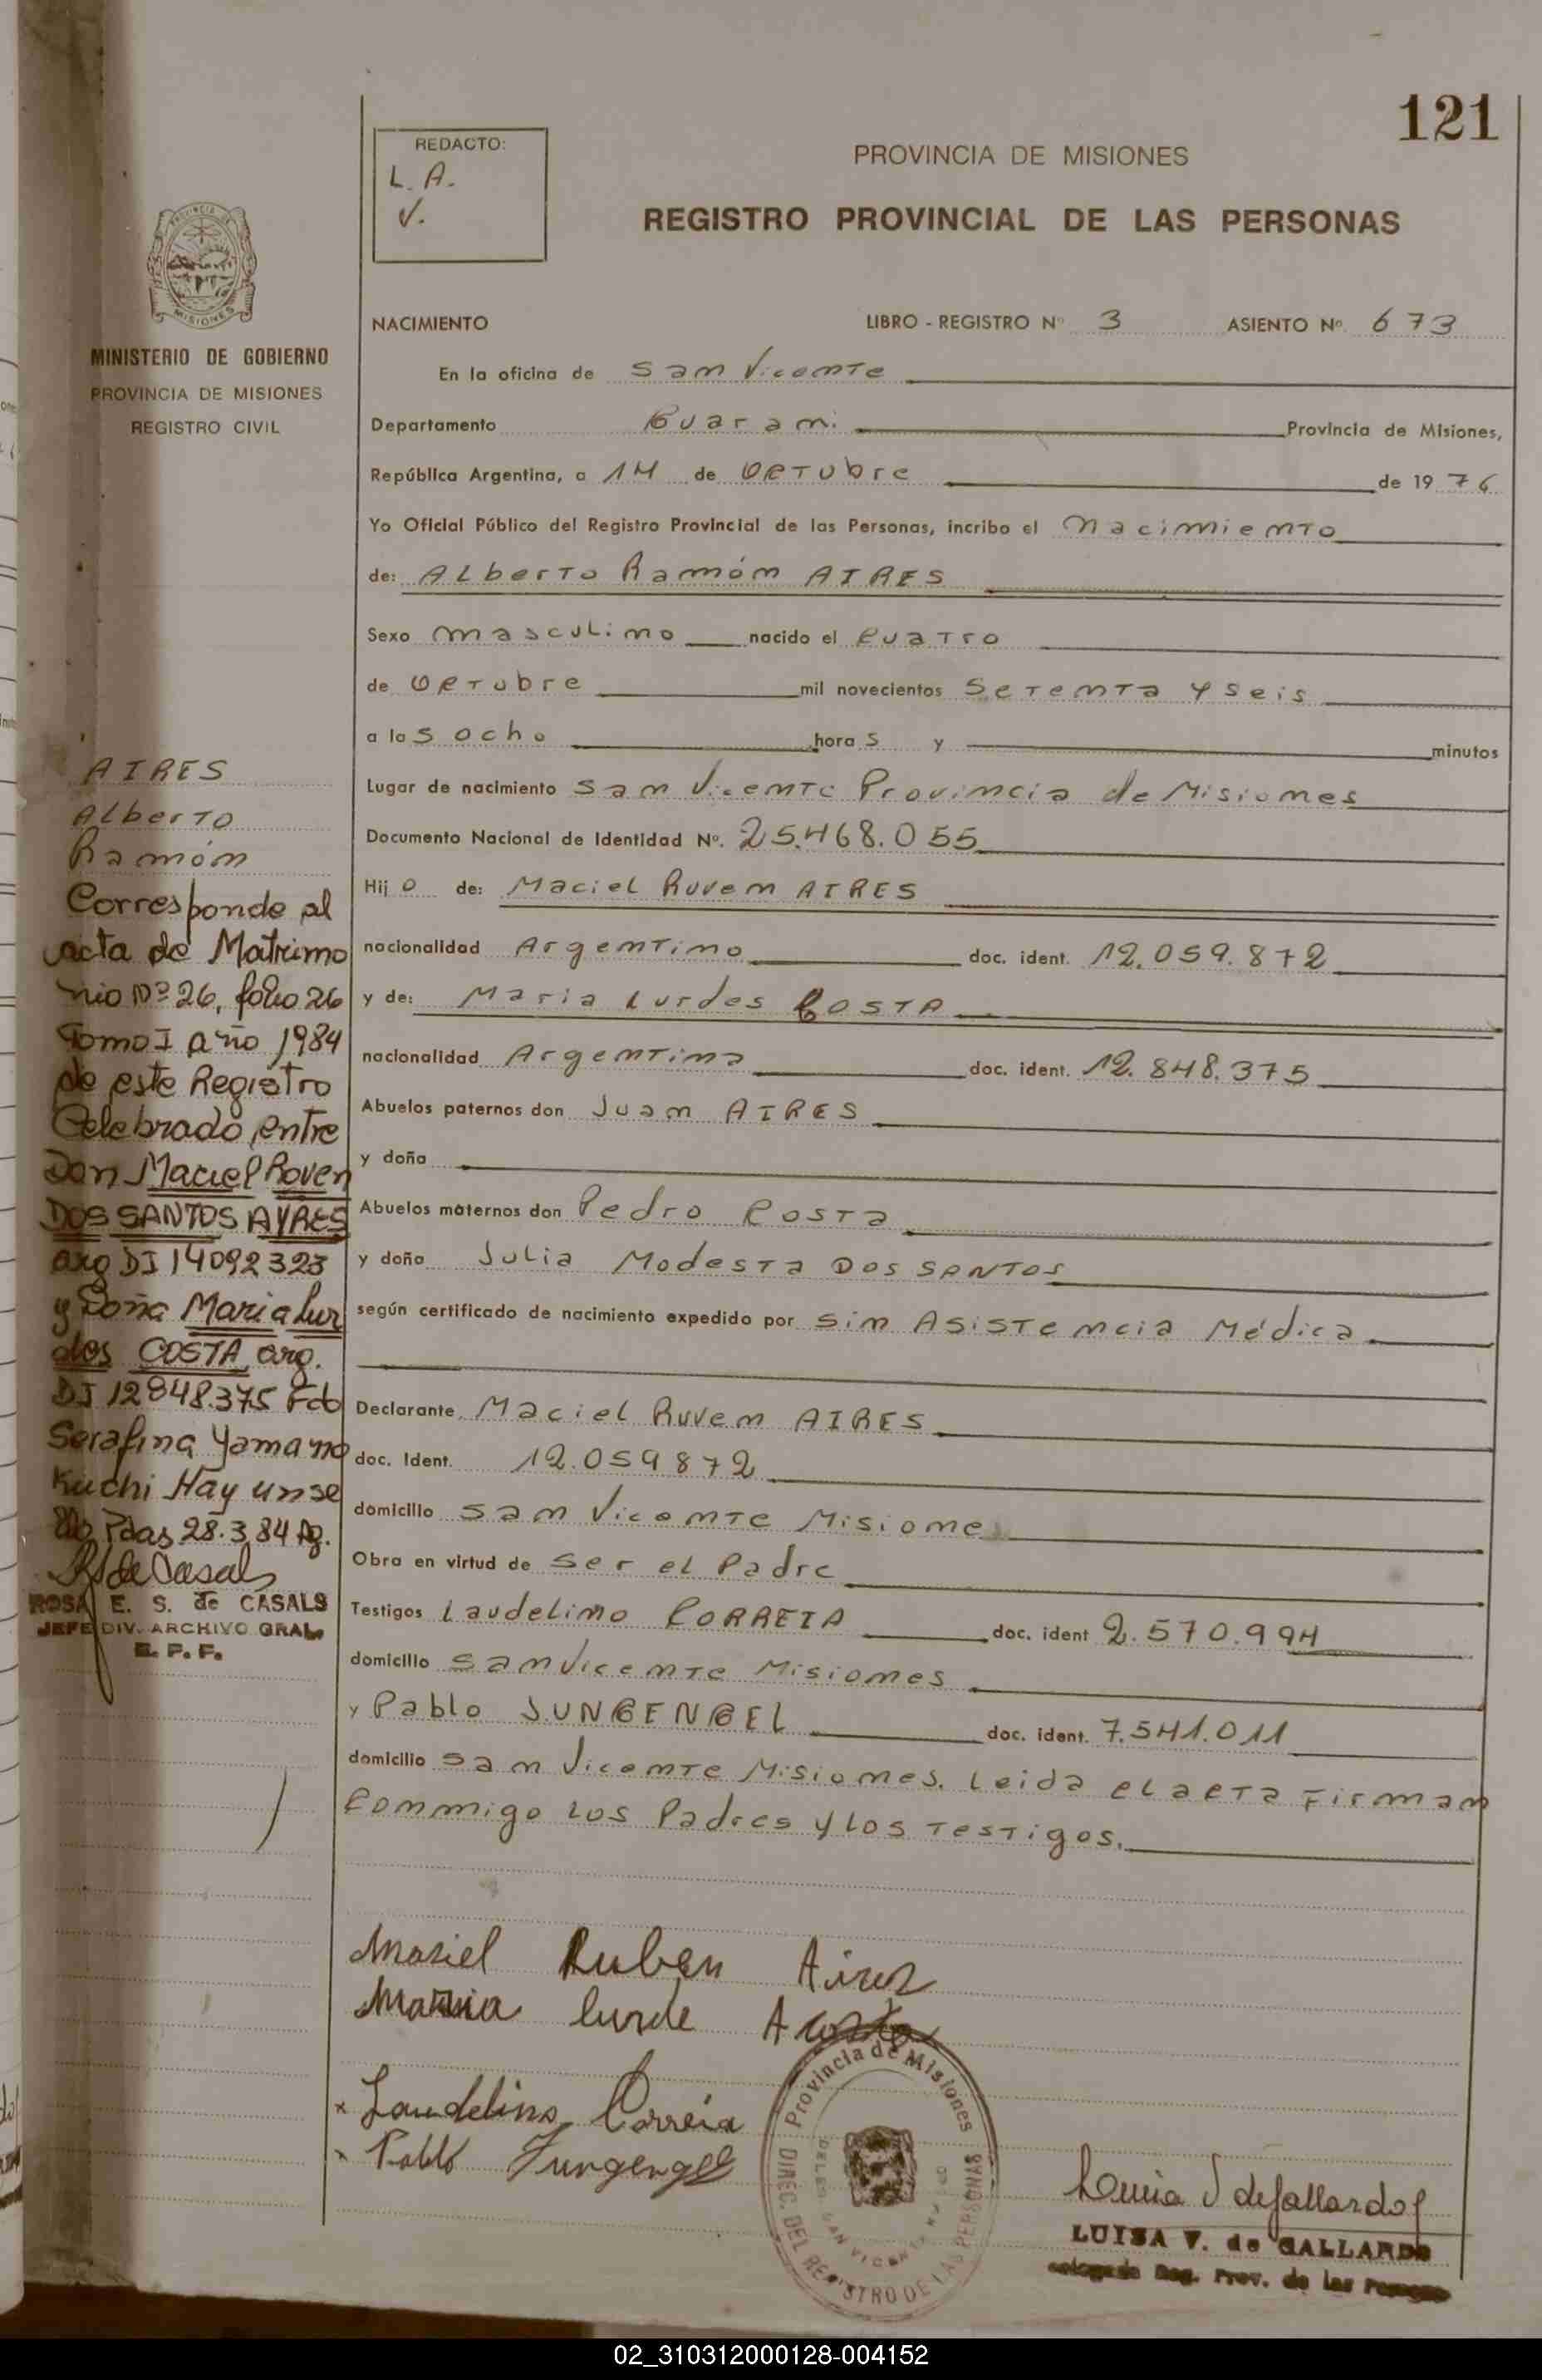 121
REDACTO:
L. A.
V.
PROVINCIA DE MISIONES
REGISTRO PROVINCIAL DE LAS PERSONAS
PROVINCIA DE
MISIONES
MINISTERIO DE GOBIERNO
PROVINCIA DE MISIONES
REGISTRO CIVIL
NACIMIENTO LIBRO - REGISTRO Nº 3 ASIENTO Nº. 673
En la oficina de San Vicente
Departamento Guarani Provincia de Misiones,
República Argentina, a 14 de Octubre de 1976
Yo Oficial Público del Registro Provincial de las Personas, incribo el nacimiento
de: Alberto Ramón AIRES
Sexo masculino nacido el cuatro
de Octubre mil novecientos setenta y seis
a las ocho horas y minutos
Lugar de nacimiento San Vicente Provincia de Misiones
Documento Nacional de Identidad Nº. 25.468.055
Hijo de: Maciel Ruven AIRES
nacionalidad Argentino doc. ident. 12.059.872
y de: Maria Lurdes COSTA
nacionalidad Argentina doc. ident. 12.848.375
Abuelos paternos don Juan AIRES
y doña
Abuelos maternos don Pedro Costa
y doña Julia Modesta DOS SANTOS
según certificado de nacimiento expedido por sin Asistencia Médica
Declarante Maciel Ruven AIRES
doc. Ident. 12.059872
domicilio San Vicente Misiones
Obra en virtud de ser el Padre
Testigos Laudelino CORREIA doc. ident 2.570.994
domicilio San Vicente Misiones
y Pablo JUNGENGEL doc. ident. 7.541.011
domicilio San Vicente Misiones. Leida el acta Firman
conmmigo los Padres y los testigos.
AIRES
Alberto
Ramón
Corresponde al
acta de Matrimo
nio Nº 26, folio 26
Tomo I año 1984
de este Registro
Celebrado entre
Don Maciel Roven
DOS SANTOS AYRES
arg DI 14092323
y Doña Maria Lur
des COSTA, arg.
DI 12848.375 Fdo
Serafina Yamano
Kuchi Hay un se
llo Pdas 28.3.84 Ag.
RS de Casals
ROSA E. S. de CASALS
JEFE DIV. ARCHIVO GRAL.
R. P. P.
Masiel Ruben Aires
Maria lurde Acosta
x Laudelino Correia
x Pablo Jungengel
Provincia de Misiones
DIREC. DEL REGISTRO DE LAS PERSONAS
SAN VICENTE
Luisa V de Gallardo
LUISA V. de GALLARDO
Delegada Reg. Prov. de las Personas
02_310312000128-004152